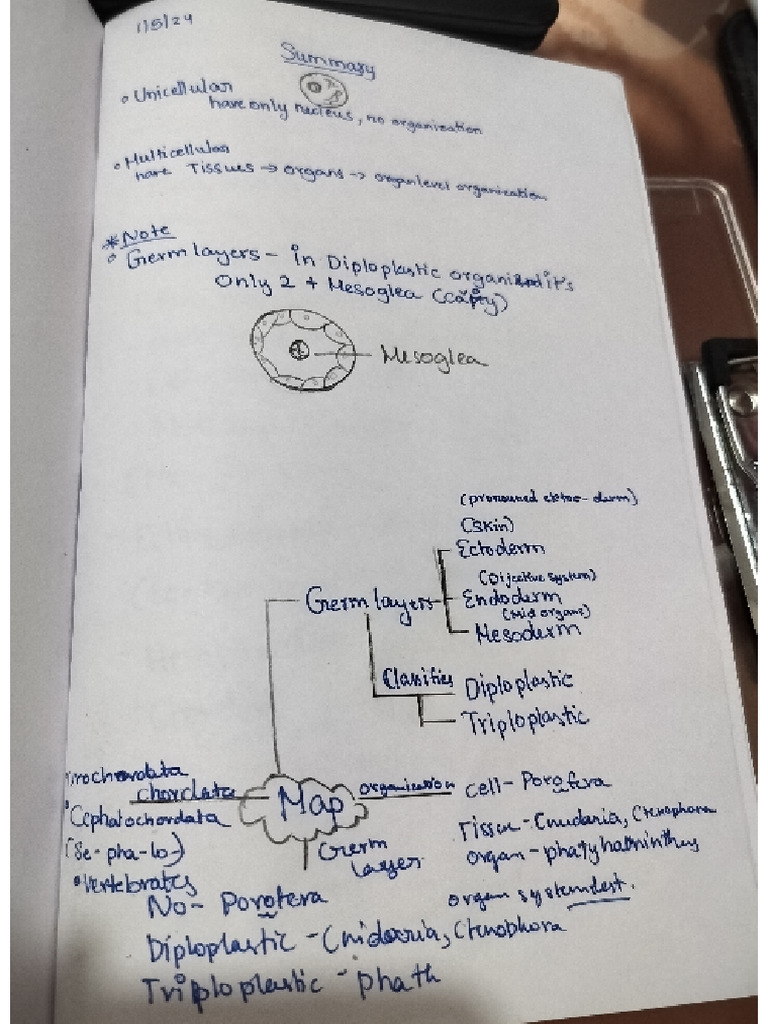 1/5/24
Summary
• Unicellular
have only nucleus, no organization
• Multicellular
have Tissues → organs → organ level organization
* Note
• Germ layers - in Diploplastic
Only 2 + Mesoglea
Mesoglea
(pronounced ektoo-derm)
(Skin)
Ectoderm
(Dijective system)
Germ layers Endoderm
(Mid organs)
Mesoderm
Classifies Diploplastic
Triploplastic
Urochordata
chordata Map organization cell - Porofera
• Cephalochordata
(Se-pha-lo-)
Tissue - Cnudaria, Ctenophora
Germ layer
organ - phatyhalminthes
• Vertebrates
organ system
No - Porofera
Diploplastic - Cnidarria, Ctenophora
Triploplastic - phath